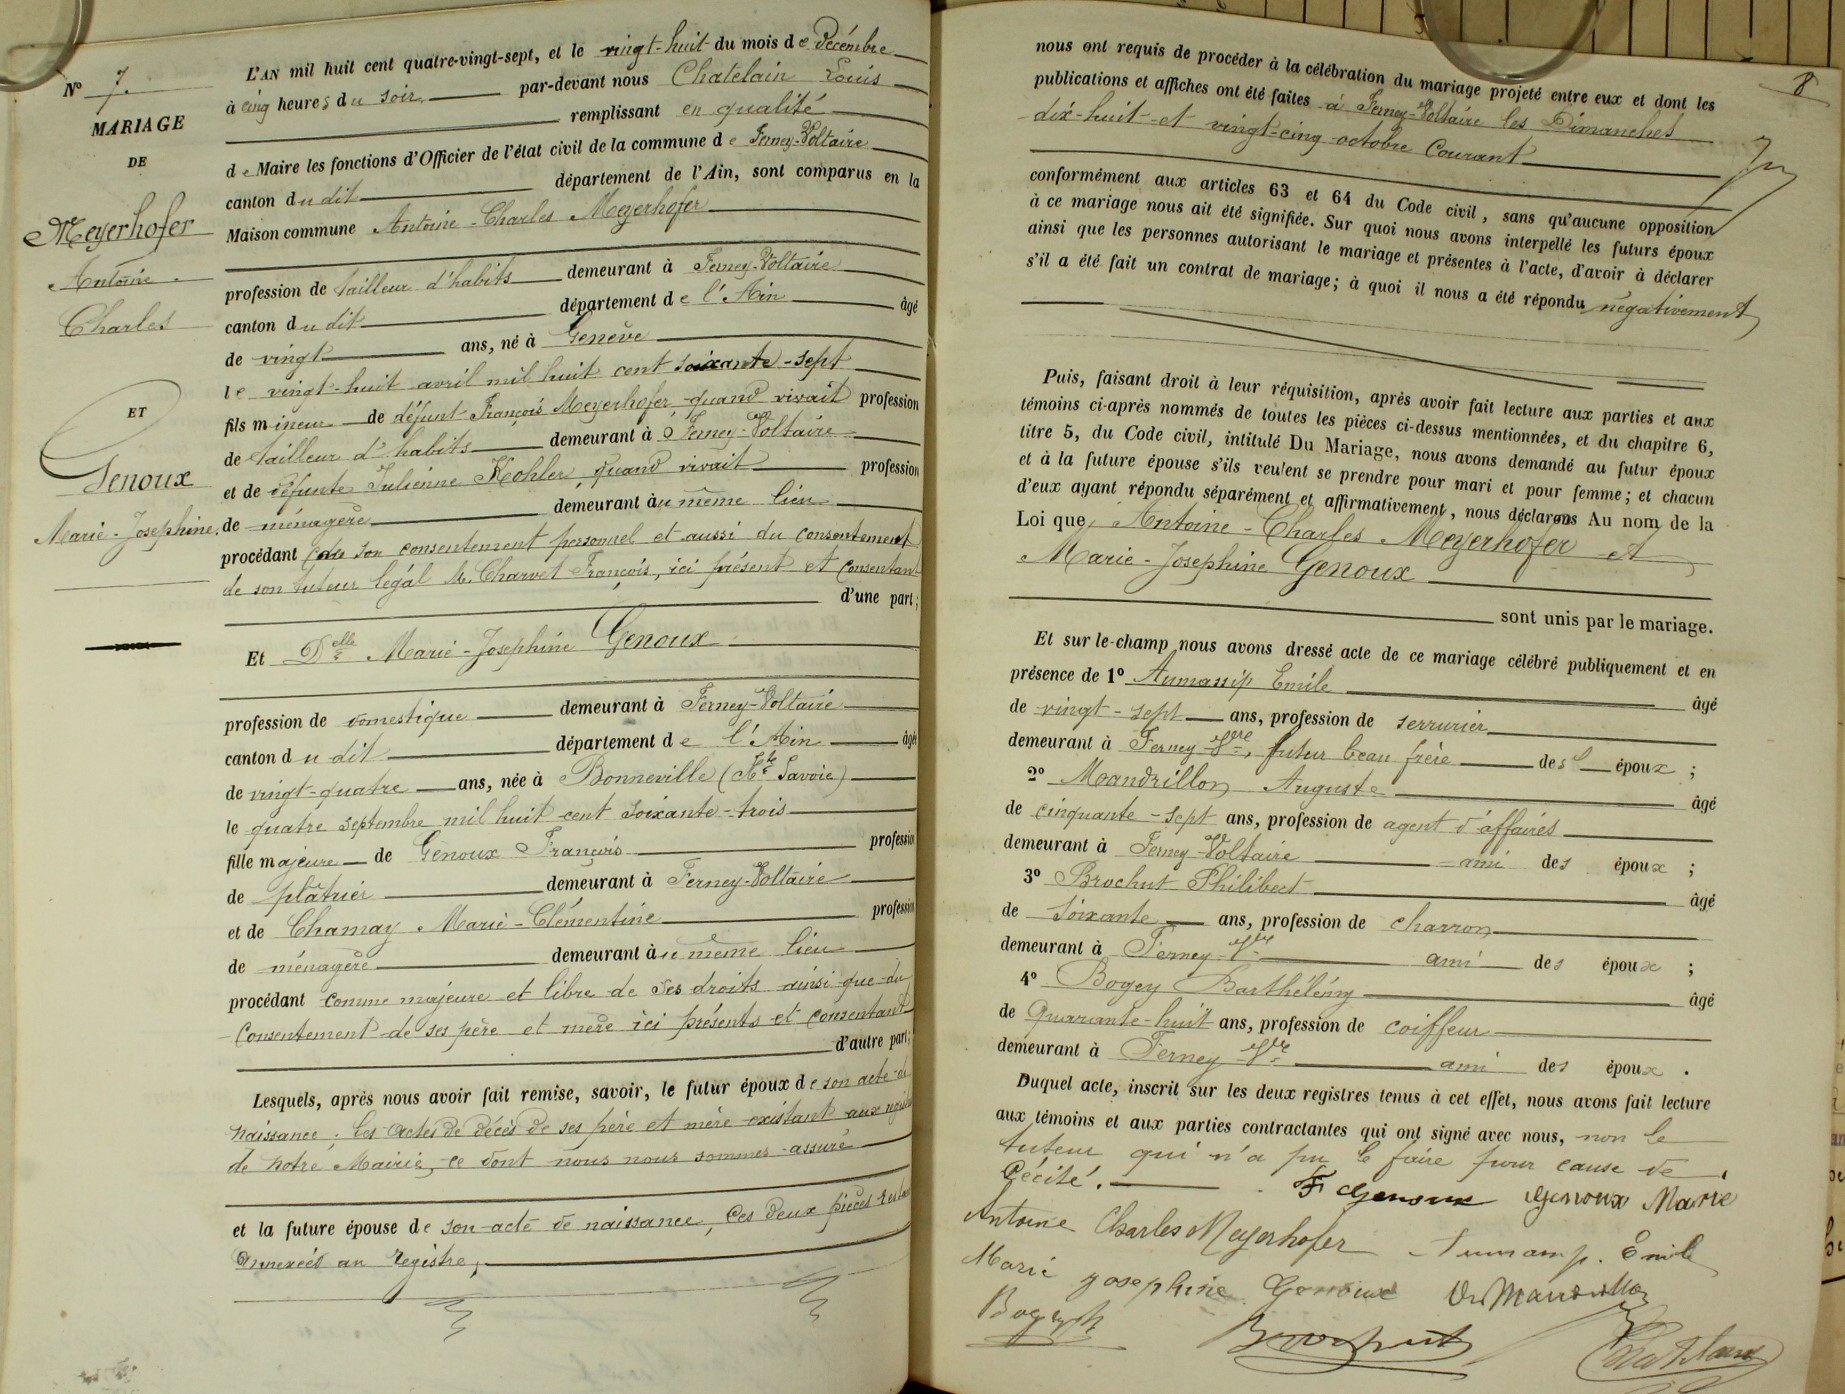 N° 7.
MARIAGE
DE
Meyerhofer
Antoine
Charles
ET
Genoux
Marie-Josephine.
L'AN mil huit cent quatre-vingt-sept, et le vingt-huit du mois de Décémbre
à cinq heures du soir par-devant nous Chatelain Louis
remplissant en qualité
de Maire les fonctions d'Officier de l'état civil de la commune de Ferney-Voltaire
canton du dit département de l'Ain, sont comparus en la
Maison commune Antoine-Charles Meyerhofer
profession de tailleur d'habits demeurant à Ferney-Voltaire
canton du dit département de l'Ain âgé
de vingt ans, né à Genève
le vingt-huit avril mil huit cent soixante-sept
fils mineur de défunt François Meyerhofer quand vivait profession
de tailleur d'habits demeurant à Ferney-Voltaire
et de défunte Julienne Kohler quand vivait profession
de ménagère demeurant au même lieu
procédant de son consentement personnel et aussi du consentement
de son tuteur légal M. Charvet François, ici présent et consentant
d'une part;
Et Delle Marie-Josephine Genoux
profession de domestique demeurant à Ferney-Voltaire
canton du dit département de l'Ain âgé
de vingt-quatre ans, née à Bonneville (Hte Savoie)
le quatre septembre mil huit cent soixante-trois
fille majeure de Genoux François profession
de plâtrier demeurant à Ferney-Voltaire
et de Chamay Marie-Clémentine profession
de ménagère demeurant au même lieu
procédant comme majeure et libre de ses droits ainsi que du
consentement de ses père et mère ici présents et consentant
d'autre part;
Lesquels, après nous avoir fait remise, savoir, le futur époux de son acte de
naissance; les actes de décès de ses père et mère existant aux
de notre Mairie, ce dont nous nous sommes assuré
et la future épouse de son acte de naissance, ces deux pièces
annexées au registre,
8
nous ont requis de procéder à la célébration du mariage projeté entre eux et dont les
publications et affiches ont été faites à Ferney-Voltaire les Dimanches
dix-huit et vingt-cinq octobre courant
conformément aux articles 63 et 64 du Code civil, sans qu'aucune opposition
à ce mariage nous ait été signifiée. Sur quoi nous avons interpellé les futurs époux
ainsi que les personnes autorisant le mariage et présentes à l'acte, d'avoir à déclarer
s'il a été fait un contrat de mariage; à quoi il nous a été répondu négativement
Puis, faisant droit à leur réquisition, après avoir fait lecture aux parties et aux
témoins ci-après nommés de toutes les pièces ci-dessus mentionnées, et du chapitre 6,
titre 5, du Code civil, intitulé Du Mariage, nous avons demandé au futur époux
et à la future épouse s'ils veulent se prendre pour mari et pour femme; et chacun
d'eux ayant répondu séparément et affirmativement, nous déclarons Au nom de la
Loi que Antoine-Charles Meyerhofer et
Marie-Josephine Genoux
sont unis par le mariage.
Et sur-le-champ nous avons dressé acte de ce mariage célébré publiquement et en
présence de 1° Aumassip Emile âgé
de vingt-sept ans, profession de serrurier
demeurant à Ferney-Vre, futur beau frère des époux;
2° Mandrillon Auguste âgé
de cinquante-sept ans, profession de agent d'affaires
demeurant à Ferney-Voltaire ami des époux;
3° Brochut Philibert âgé
de soixante ans, profession de charron
demeurant à Ferney-Vre ami des époux;
4° Bogey Barthélémy âgé
de Quarante-huit ans, profession de coiffeur
demeurant à Ferney-Vre ami des époux.
Duquel acte, inscrit sur les deux registres tenus à cet effet, nous avons fait lecture
aux témoins et aux parties contractantes qui ont signé avec nous, non le
tuteur qui n'a pu le faire pour cause de
Cécité.
F Genoux Genoux Marie
Antoine Charles Meyerhofer Emile
Marie Josephine Genoux Mandrillon
Bogey
Brochut Chatelain